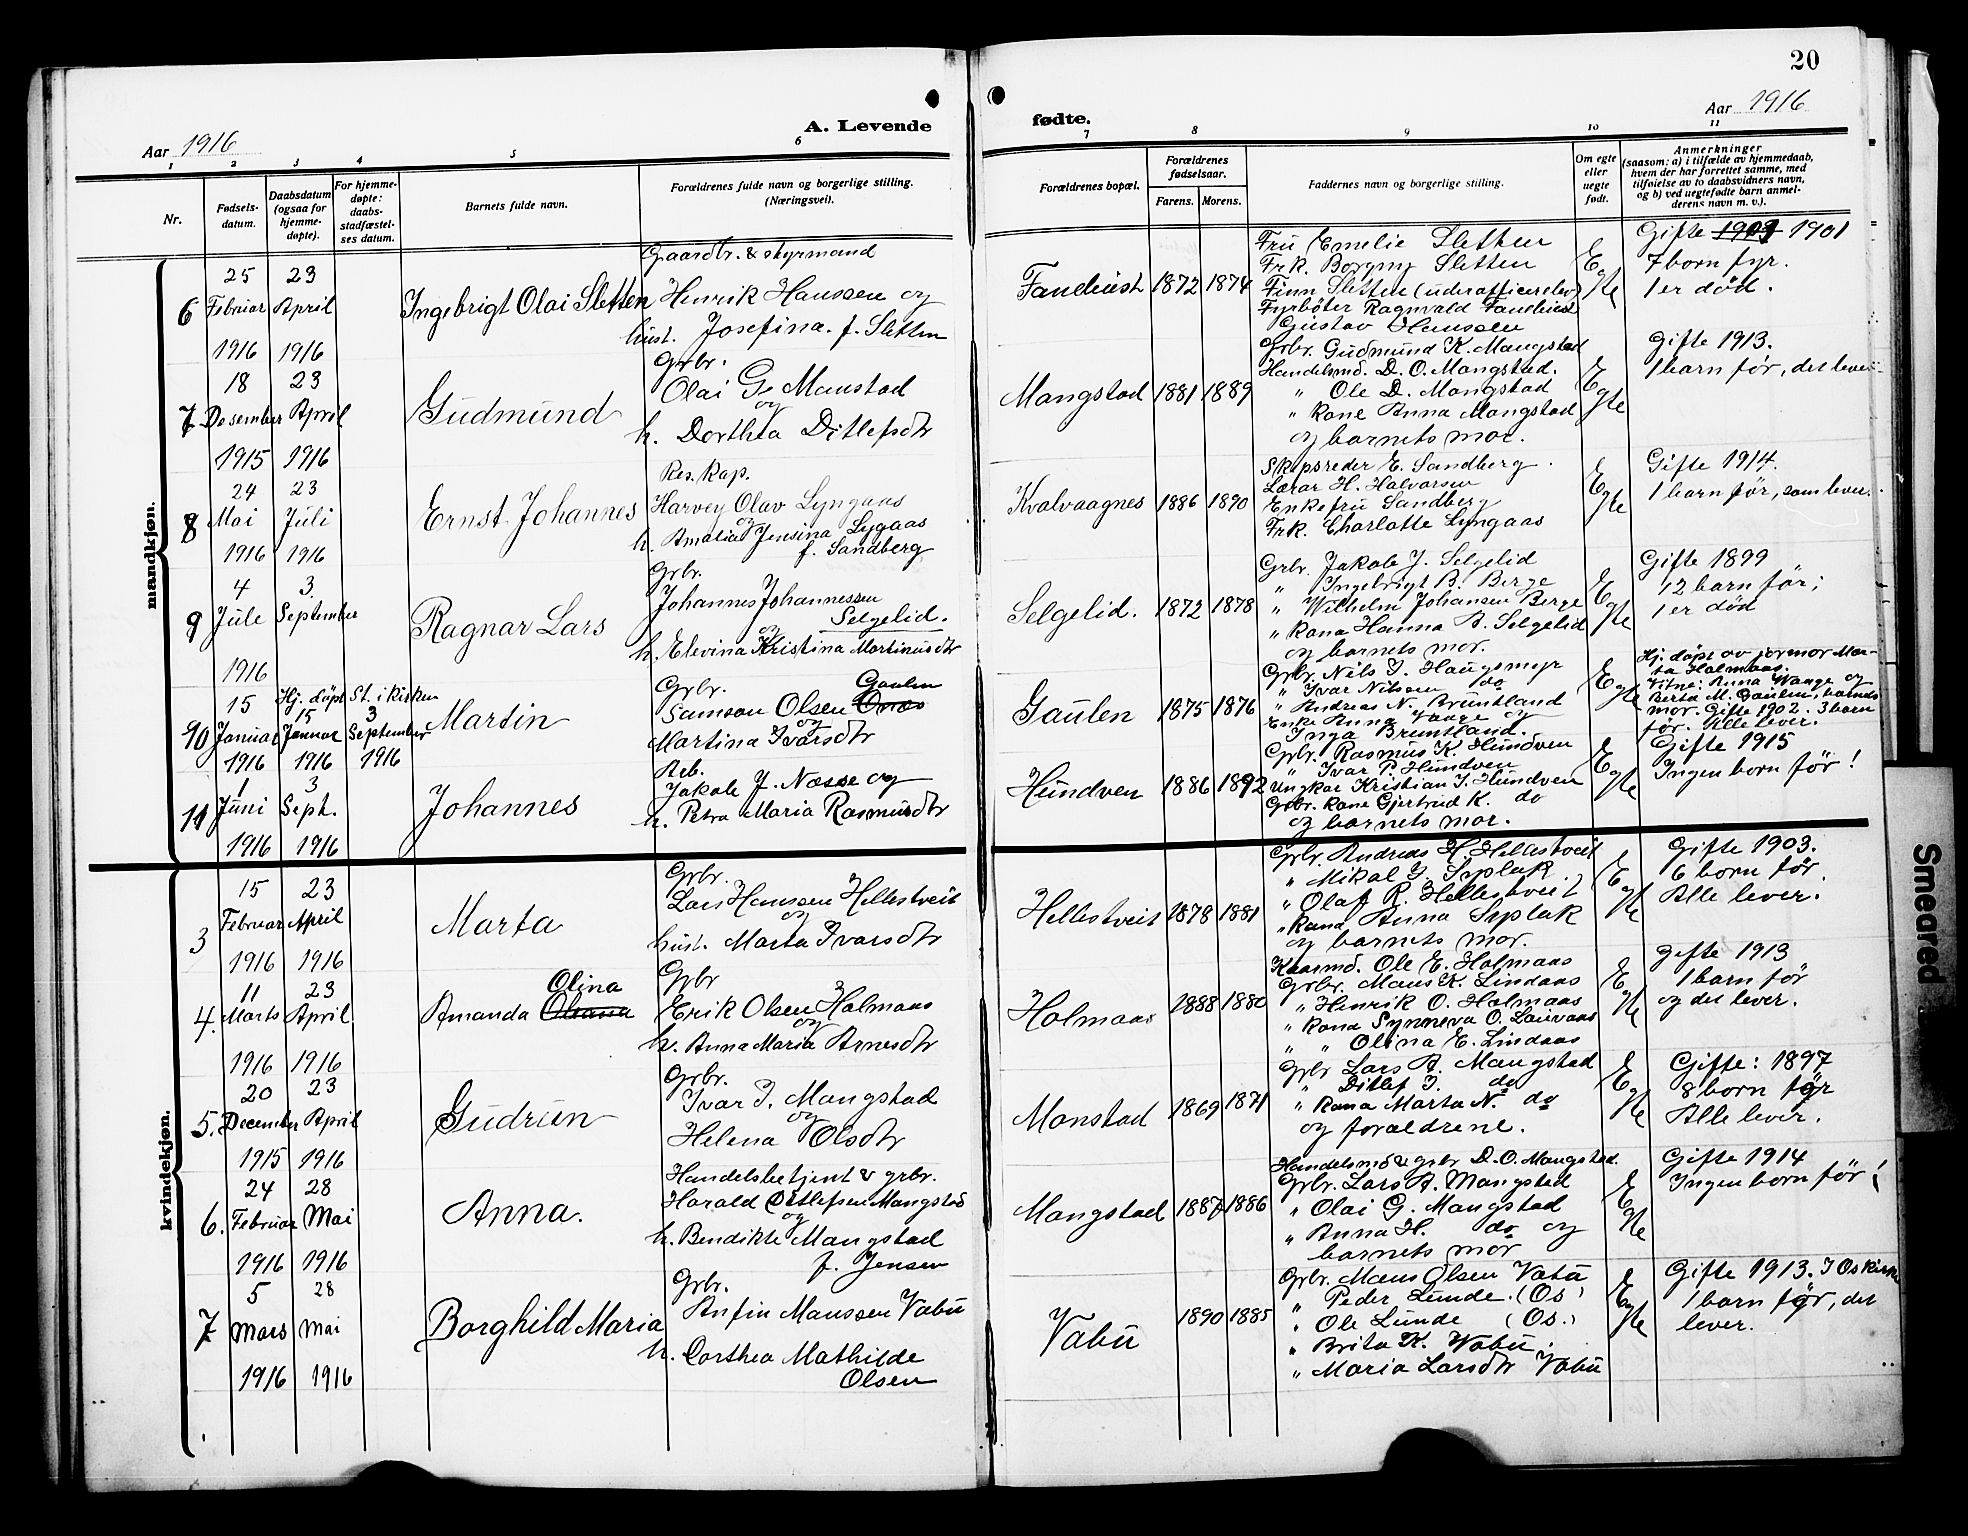 20
Aar 1916
A. Levende
fødte.
Aar 1916
1 2 3 4 5 6 7 8 9 10 11
Nr.
Fødsels-
datum.
Daabsdatum
(ogsaa for
hjemme-
døpte).
For hjemme-
døpte:
daabs-
stadfæstel-
ses datum.
Barnets fulde navn.
Forældrenes fulde navn og borgerlige stilling.
(Næringsvei).
Forældrenes bopæl.
Forældrenes
fødselsaar.
Farens. Morens.
Faddernes navn og borgerlige stilling.
Om egte
eller
uegte
født.
Anmerkninger
(saasom: a) i tilfælde av hjemmedaab,
hvem der har forrettet samme, med
tilføielse av to daabsvidners navn,
og b) ved uegtefødte barn anmel-
derens navn m. v.).
mandkjøn.
6
25 Februar 1916
23 April 1916
Ingebrigt Olai Sletten
Gaardbr. & styrmand
Henrik Hanssen og
hust. Josefina f. Sletten
1872 1874
Fru Emelie Sletten
Frk. Borgny Sletten
Finn Sletten (underofficerelev)
Fyrbøter Ragnvald
Gustav Hanssen
Egte
Gifte 1901
7 born fyr.
1 er død.
7
18 Desember 1915
23 April 1916
Gudmund
Grbr.
Olai G. Manstad
og
h. Dorthea Ditlefsdtr
Mangstad
1881 1889
Grbr. Gudmund K. Mangstad
Handelsmd. D. O. Mangstad.
" Ole D. Mangstad
" kone Anna Mangstad
og barnets mor.
Egte
Gifte 1913.
1 barn før, det lever
8
24 Mai 1916
23 Juli 1916
Ernst Johannes
Res. kap.
Harvey Olav Lyngaas
og
h. Amalia Jensina Lygaas
f. Sandberg
Kvalvaagnes
1886 1890
Skipsreder E. Sandberg.
Lærar H. Halvorsen
Enkefru Sandberg
Frk. Charlotte Lyngaas
Egte
Gifte 1914.
1 barn før, som lever.
9
4 Jule 1916
3. September
Ragnar Lars
Grbr.
Johannes Johannessen
Selgelid.
og
h. Elevina Kristina Martinusdtr
Selgelid.
1872 1878
Grbr. Jakob J. Selgelid
" Ingebrigt B. Berge
" Wilhelm Johansen Berge
" kona Hanna B. Selgelid
og barnets mor.
Egte
Gifte 1899
12 barn før;
1 er død
10
15 Januar 1916
Hj. døpt 15 Januar 1916
St. i kirken 3 September 1916
Martin
Grbr. Gaulen
Samson Olsen
og
Martina Ivarsdtr
Gaulen
1875 1876
Grbr. Nils I. Haugsmyr
" Ivar Nilsen do
" Andreas N. Bruntland
Enke Anna Vange og
Inga Bruntland.
Egte
Hj. døpt av jormor Mar-
ta Holmaas.
Vitne: Anna Wange og
Berta M. Gaulen, barnets
mor. Gifte 1902. 3 barn
før. Alle lever.
11
1 Juni 1916
3 Sept. 1916
Johannes
Arb.
Jakob J. Næsse og
h. Petra Maria Rasmusdtr
Hundven
1886 1892
Grbr. Rasmus K. Hundven
" Ivar P. Hundven
Ungkar Kristian I. Hundven
Grbr. kone Gjertrud K. do
og barnets mor.
Egte
Gifte 1915
Ingen born før!
kvindekjøn.
3
15 Februar 1916
23 April 1916
Marta
Grbr.
Lars Hanssen Hellestveit
og
hust. Marta Ivarsdtr
Hellestveit
1878 1881
Grbr. Andreas H. Hellestveit
" Mikal J. Syslak
" Olaf R. Hellestveit
" kona Anna Syslak
og barnets mor.
Egte
Gifte 1903.
6 born før.
Alle lever.
4.
11 Marts 1916
23 April 1916
Amanda Oleana Olina
Grbr
Erik Olsen Holmaas
og
h. Anna Maria Arnesdtr
Holmaas
1888 1880
Kaarmd. Ole E. Holmaas
Grbr. Mans K. Lindaas
" Henrik O. Holmaas
" kona Synneva O. Lauvaas
" " Olina E. Lindaas
Egte
gifte 1913
1 barn før
og det lever.
5.
20 December 1915
23 April 1916
Gudrun
Grbr.
Ivar I. Mangstad
og
Helena Olsdtr
Manstad
1869 1871
Grbr Lars A. Mangstad
" Ditlef I. do
" Kona Marta N. do
og foraldrene.
Egte
Gifte: 1897
8 born før
Alle lever.
6.
24 Februar 1916
28 Mai 1916
Anna.
Handelsbetjent & grbr.
Harald Ditlefsen Mangstad
og
h. Bendikte Mangstad
f. Jensen
Mangstad
1887 1886
Handelsmd & grbr D. O. Mangstad.
Grbr. Lars A. Mangstad
" Olai G. Mangstad
" Anna H. do og
barnets mor
Egte
Gifte 1914
Ingen born før!
7
5 Mars 1916
28 Mai 1916
Borghild Maria
Grbr.
Anfin Manssen Vabø
h. Dorthea Mathilde
Olsen
Vabø
1890 1885
Grbr. Mans Olsen Vabø
" Peder Lunde. (Os)
" Ole Lunde (Os.)
" Brita K. Vabø.
" Maria Larsdtr Vabø
Egte
Gifte 1913. I Os kirke
1 barn før, det
lever.
Smeared